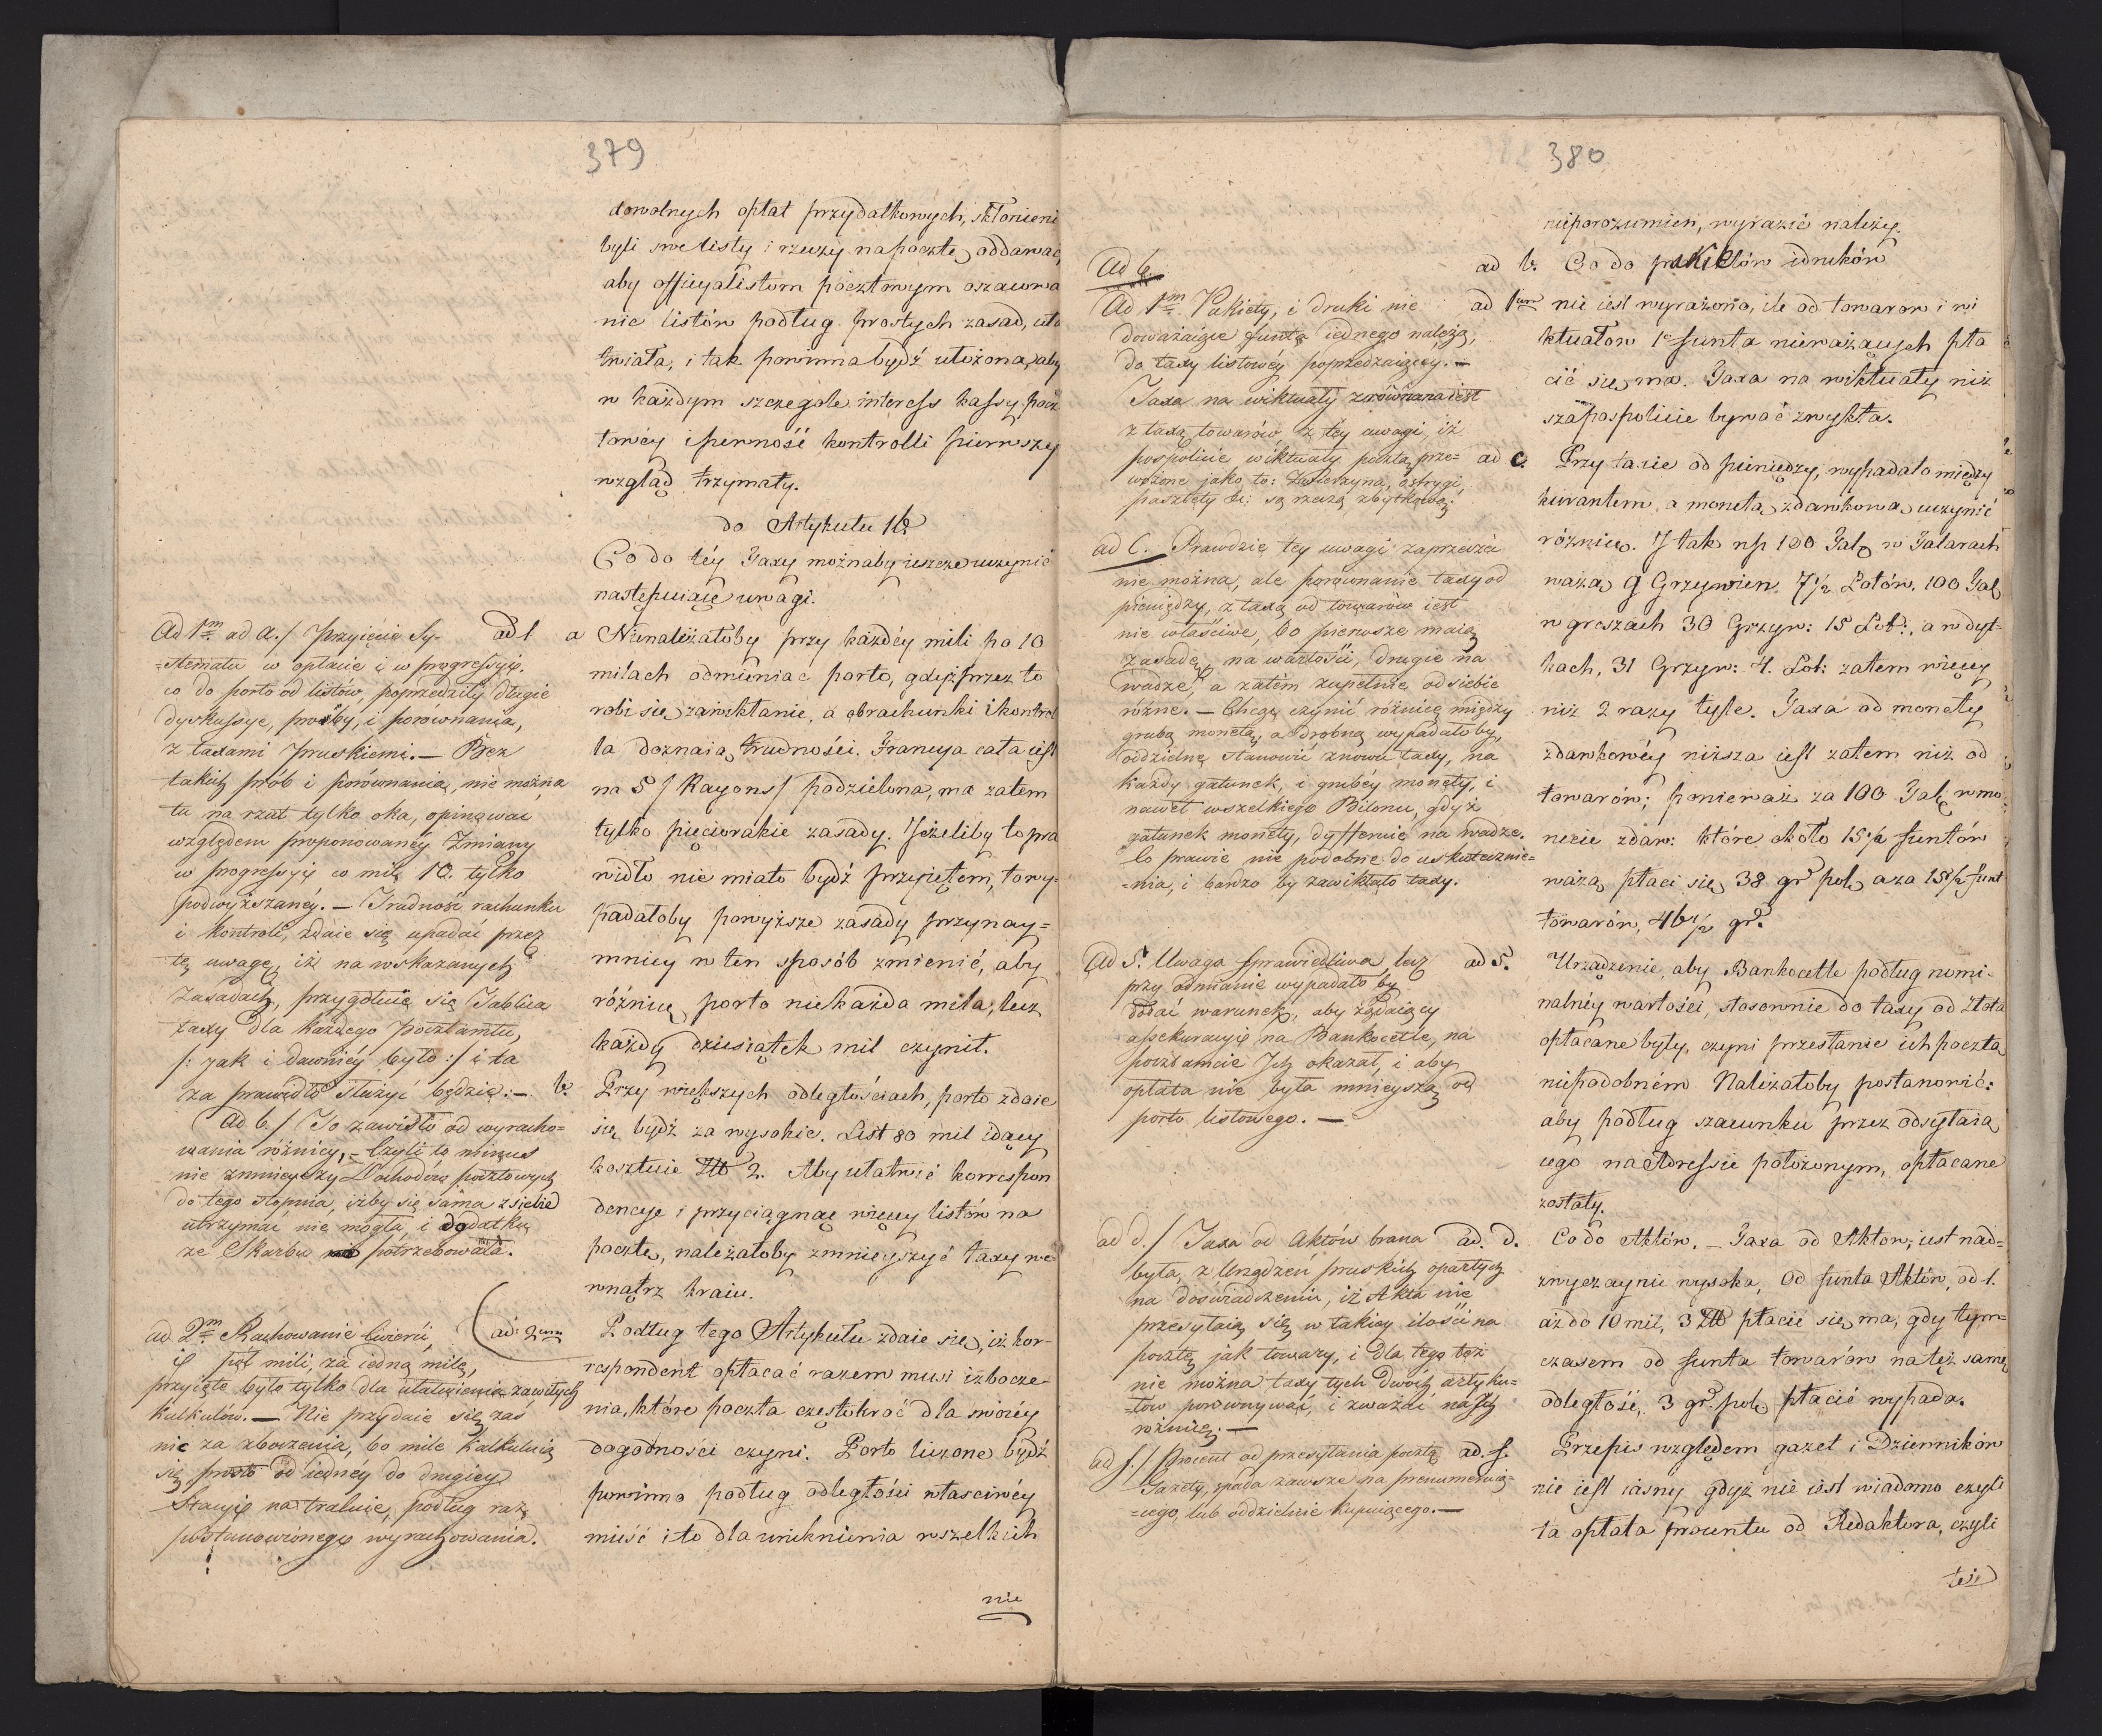 379
dowolnych opłat przydatkowych, skłonieni
byli swe listy i rzeczy na pocztę oddawać,
aby officyalistom pocztowym oszacowa
nie listów podług prostych zasad, uła
twiała, i tak powinna bydź ułożona, aby
w każdym szczegole interess kassy pocz
towéy i pewność kontrolli pierwszy
wzgląd trzymały.
do Artykułu 16
Co do téy Taxy możnaby ieszcze uczynić
następuiące uwagi.
ad 1 a Nienależałoby przy każdéy mili po 10
milach odmieniac porto, gdyż przez to
robi się zawikłanie, a obrachunki i kontrol
la doznaią trudności. Francya cała iest
na 5 / Rayons / podzielona, ma zatem
tylko pięciorakie zasady. Jeżeliby to pra
widło nie miało bydź przyiętem, to wy=
padałoby powyższe zasady przynay=
mniey w ten sposób zmienić, aby
różnicę porto nie każda mila, lecz
każdy dziesiątek mil czynił.
b. Przy większych odległościach, porto zdaie
się bydź za wysokie. List 80 mil idący
kosztuie Złł 2. Aby ułatwić korrespon
dencye i przyciągnąć więcey listów na
pocztę, należałoby zmnieyszyć taxy we
wnątrz kraiu.
ad 2um Podług tego Artykułu zdaie się, iż kor-
respondent opłacać razem musi i zbocze-
nia, które poczta częstokroć dla swoiéy
dogodności czyni. Porto liczone bydź
powinno podług odległości własciwéy
mieysć i to dla uniknienia wszelkich
nie
Ad 1m ad a. / Przyięcie Sy-
=stematu w opłacie i w progressyi.
co do porto od listów, poprzedziły długie
dyskussye, proby, i porównania,
z taxami Pruskiemi. — Bez
takich prób i porównania, nie można
tu na rzut tylko oka, opinąwac
względem proponowanéy Zmiany
w progressyi co mil 10. tylko
podwyższanéy. — Trudnośc rachunku
i kontroli, zdaie się upadać przez
tę uwagę, iż na wskazanych
Zasadach, przygotuie się Tablica
taxy dla każdego Pocztamtu,
/: jak i dawniéy było :/ i ta
za prawidło służyć będzie: —
Ad b. / To zawisło od wyracho=
wania różnicy, - Czyli to minus
nie zmnieyszy Dochodów pocztowych
do tego stopnia, iżby się sama z siebie
utrzymac nie mogła, i dodatku
ze Skarbu potrzebowała.
ad 2m Rachowanie ćwierci,
i pół mili, za iedną milę,
przyięte było tylko dla ułatwienia zawiłych
kalkułów. — Nie przydaie się zaś
nic za zboczenia, bo mile kalkuluią
się prosto od iednéy do drugiey
Stacyi na trakcie, podług raz
postanowionego wyrachowania.
380
nieporozumien, wyrazić należy.
ad b. Co do pakietów i druków
ad 1um nie iest wyrażono, ile od towarow i wi
ktuałow 1o funta nieważących pła
cić się ma. Taxa na wiktuały niż
sza pospolicie bywać zwykła.
ad c. Przy taxie od pieniędzy, wypadało między
kurantem, a monetą zdawkową uczynić
różnicę. J tak np 100 Tal w Talarach
ważą 9 Grzywien 7½ Lotów. 100 Tal
w groszach 30 Grzyw: 15 Lot:, a w dyt=
kach, 31 Grzyw: 4. Lot: zatem więcey
niż 2 razy tyle. Taxa od monety
zdawkowéy niższa iest zatem niż od
towarów; ponieważ za 100 Tal w mo
necie zdaw: które około 15½ funtów
ważą płaci się 38 gr pol, a za 15½ funt
towarów, 46½ gr.
ad 5. Urządzenie, aby Bankocetle podług nomi-
nalnéy wartości, stosownie do taxy od złota
opłacane były, czyni przesłanie ich pocztą
niepodobném. Należałoby postanowić:
aby podług szacunku przez odsyłaią
cego na Adressie położonym, opłacane
zostały.
ad. d. Co do Aktów. — Taxa od Aktow, iest nad=
zwyczaynie wysoka. Od funta Aktów, od 1.
aż do 10 mil, 3 Złł płacić się ma, gdy tym=
czasem od funta towarów na też samę
odległość, 3 gr. pol. płacić wypada.
ad. f. Przepis względem gazet i Dzienników
nie iest iasny gdyż nie iest wiadomo czyli
ta opłata procentu od Redaktora, czyli
też
Ad b.
Ad 1m Pakiety, i druki nie
doważaiące funta iednego należą,
do taxy listowéy poprzedzaiącey. —
Taxa na wiktuały zrównana iest
z taxą towarów z tey uwagi, iż
pospolicie wiktuały pocztą prze=
wożone jako to: Zwierzyna, ostrygi,
paszlety &: są rzeczą zbytkową.
ad C. Prawdzie tey uwagi zaprzeczéc
nie można, ale porównanie taxy od
pieniędzy, z taxą od towarów iest
nie właściwe, bo pierwsze maią
zasadę na wartości, drugie na
wadze, a zatém zupełnie od siebie
różne. — Chcąc czynić różnicę między
grubą monetą, a drobną wypadałoby,
oddzielne stanowić znowu taxy, na
każdy gatunek, i grubéy monety, i
nawet wszelkiego Bilonu, gdyż
gatunek monety, dyfferuie na wadze.
Co prawie nie podobne do uskutecznie=
=nia, i bardzo by zawikłało taxy.
Ad 5. Uwaga sprawiedliwa, lecz
przy odmianie wypadało by
dodać warunek, aby żądaiący
assekuracyi na Bankocetle, na
pocztamcie Jch okazał, i aby
opłata nie była mnieyszą od
porto listowego. —
ad d. / Taxa od Aktów brana
była, z Urządzeń pruskich opartych
na doświadczeniu, iż Akta nie
przesyłaią się w takiey ilości na
pocztę, jak towary, i dla tego też
nie można taxy tych dwóch artyku=
=łow porównywać, i zważać na ich
różnicę. —
ad f. / Procent od przesyłania pocztą
Gazety, spada zawsze na prenumeruią=
=cego, lub oddzielnie kupuiącego. —